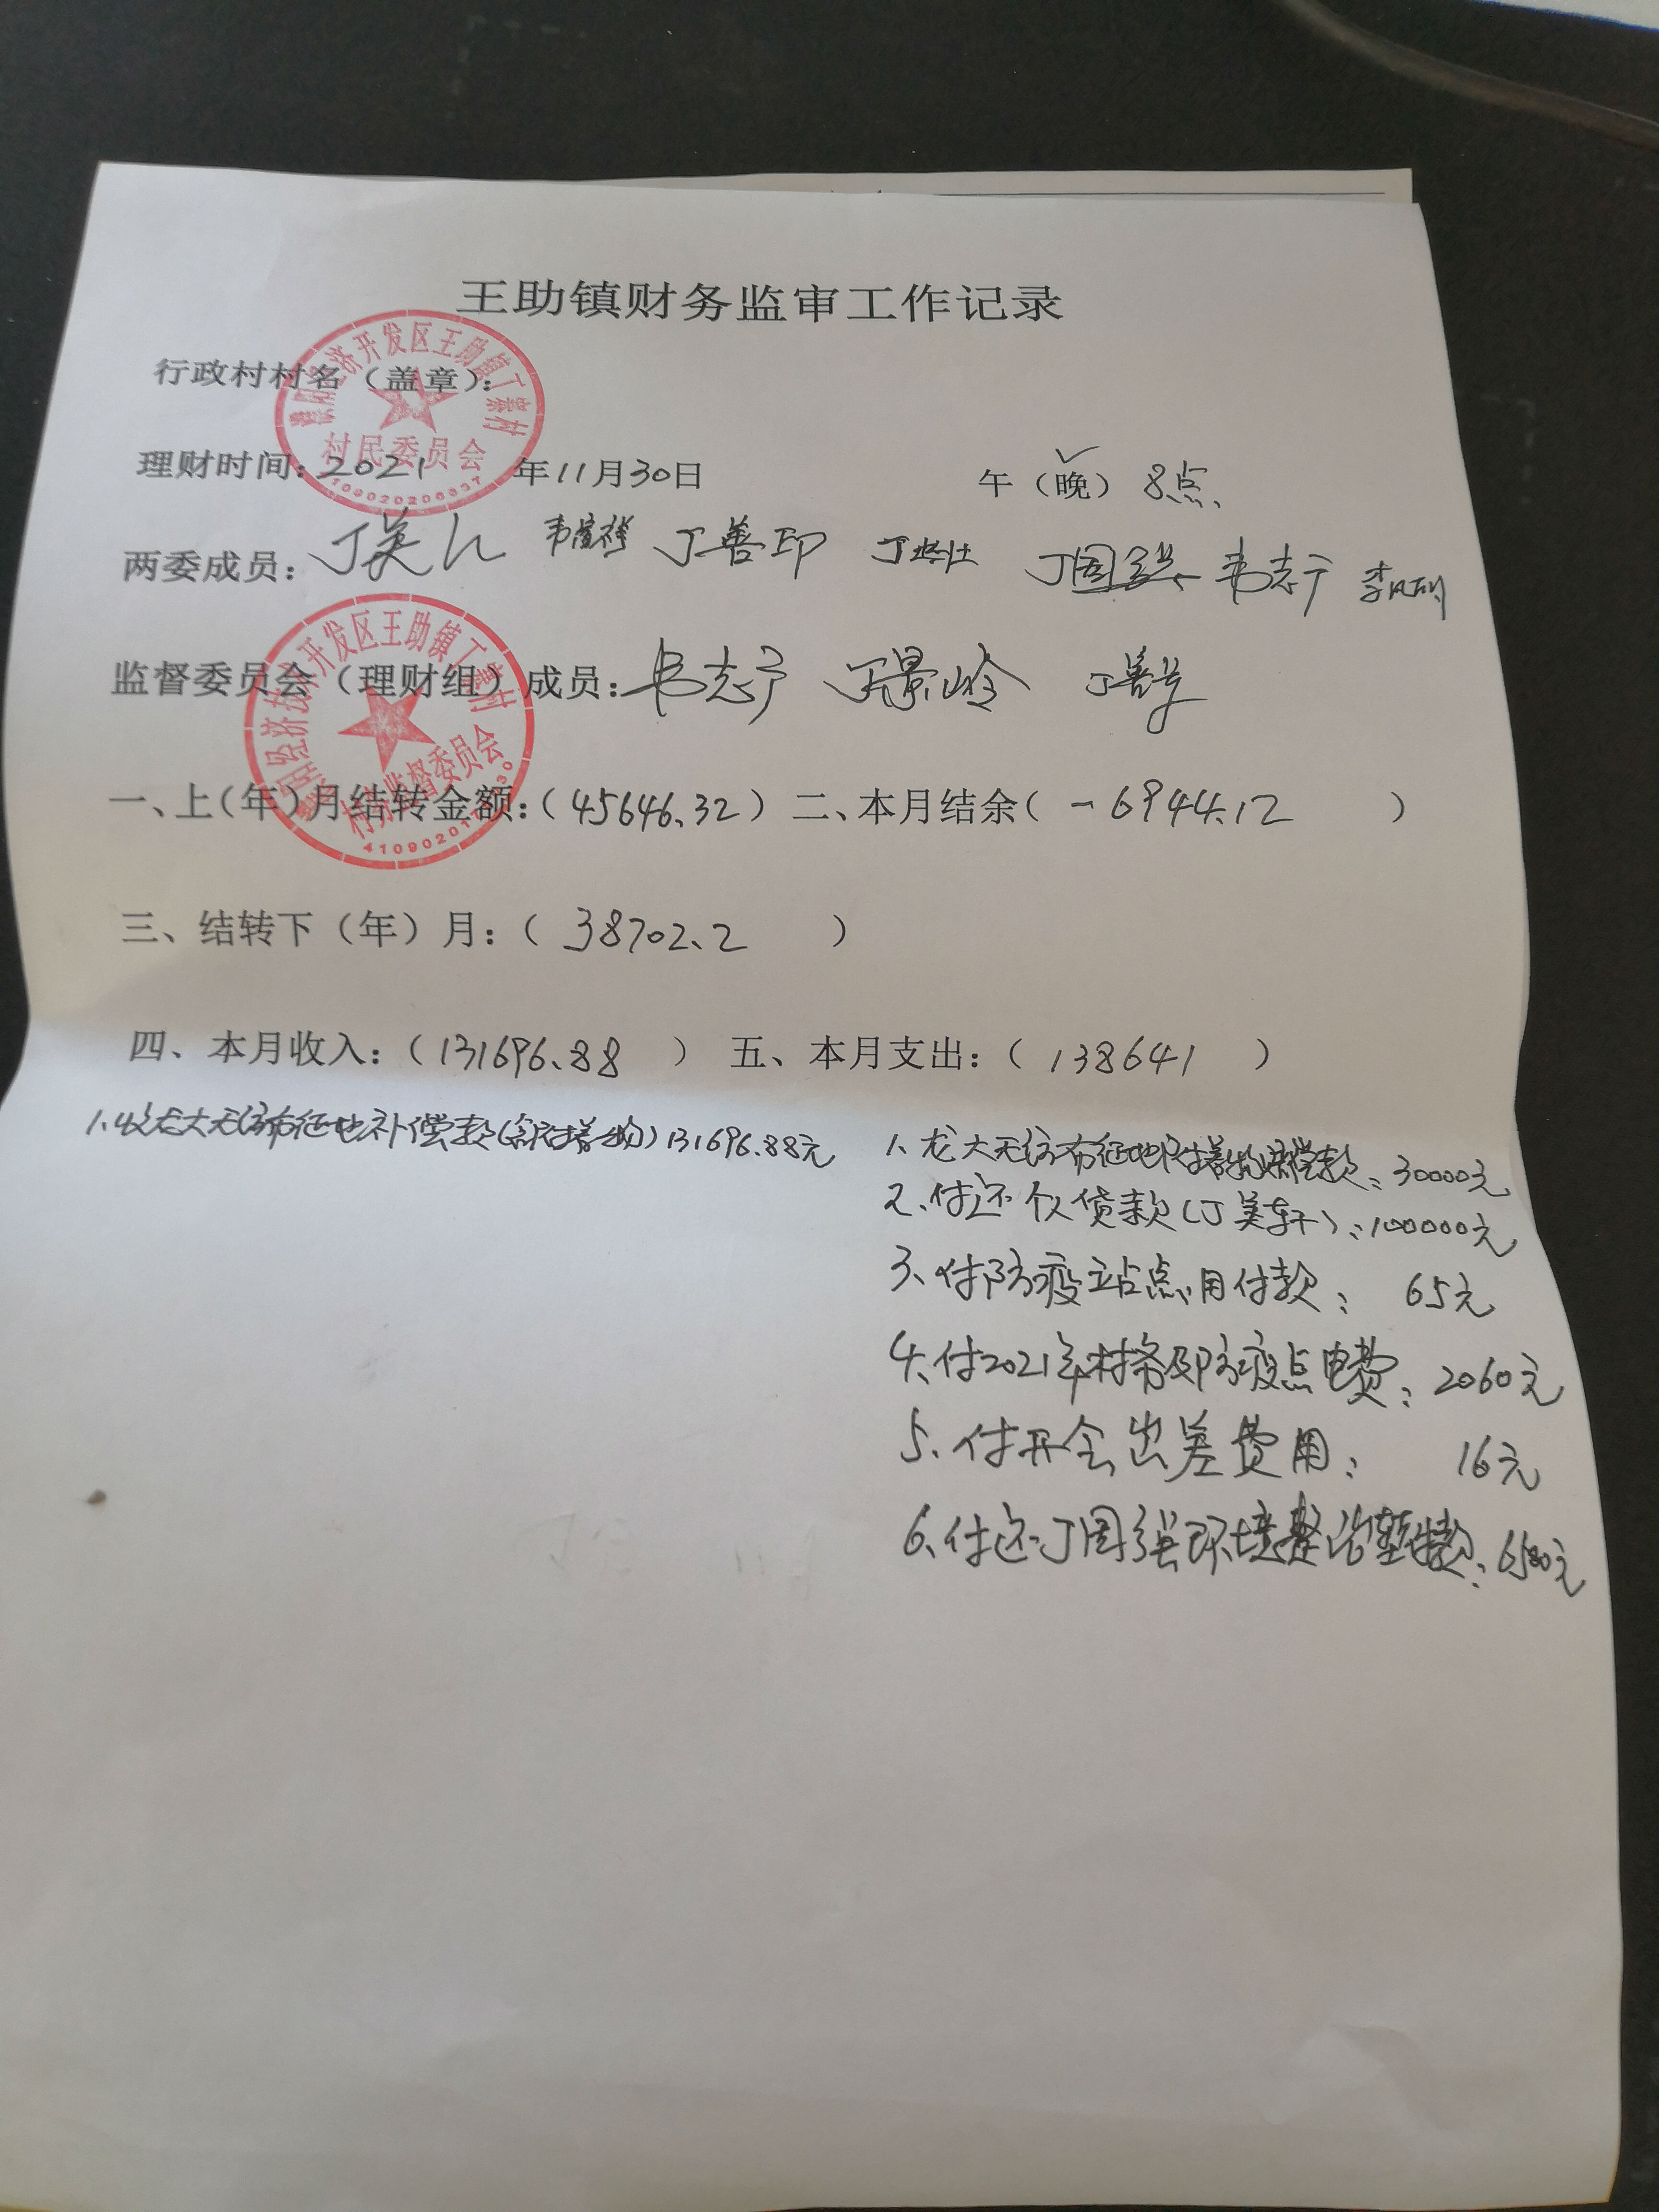 王助镇财务监审工作记录
行政村村名（盖章）：
经济开发区王助镇丁寨村
村民委员会
理财时间：2021 年11月30日 午（晚）✓ 8点
两委成员： 丁善印 丁国强 韦志广
监督委员会（理财组）成员：韦志广 丁景岭
经济技术开发区王助镇丁寨村
村务监督委员会
一、上（年）月结转金额：（45646.32） 二、本月结余（-6944.12 ）
三、结转下（年）月：（ 38702.2 ）
四、本月收入：（131696.88 ） 五、本月支出：（ 138641 ）
1.收龙大无纺布征地补偿款（含附着物）131696.88元
1.龙大无纺布征地附着物赔偿款：30000元
2.付还个人贷款（丁美轩）：100000元
3.付防疫站点用付款： 65元
4.付2021年村务及防疫点电费：2060元
5.付开会出差费用： 16元
6.付还丁国强环境整治垫款：6500元